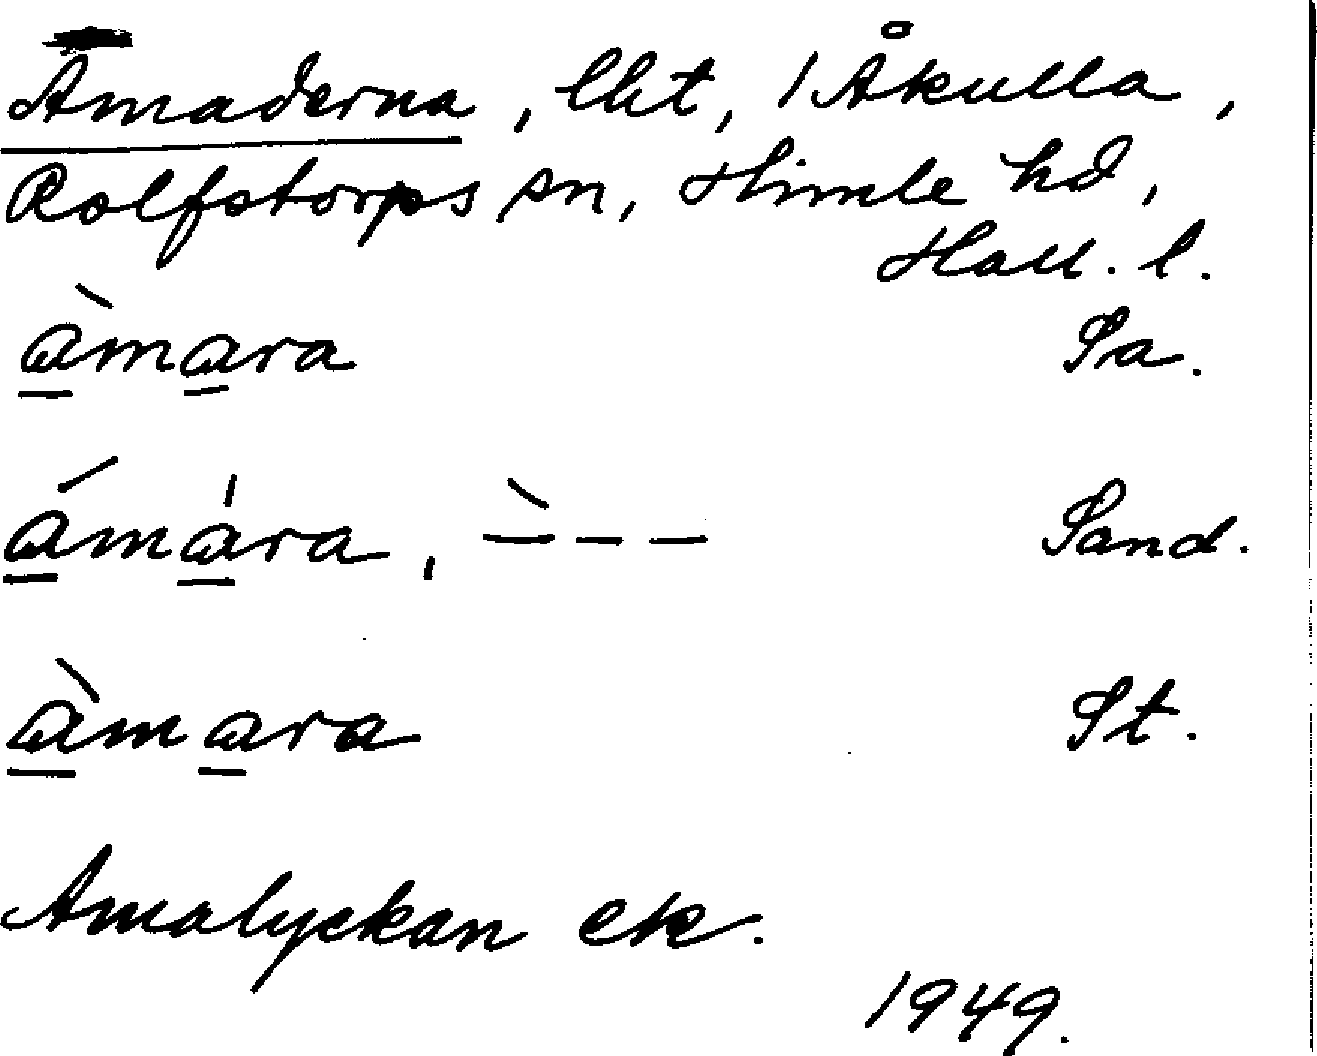 Amaderna, lht, 1 Åkulla,
Rolfstorps sn, Himle hd,
Hall. l.
àmara Sa.
ámára, – – – Sand.
àmara St.
Amalyckan ek.
1949.